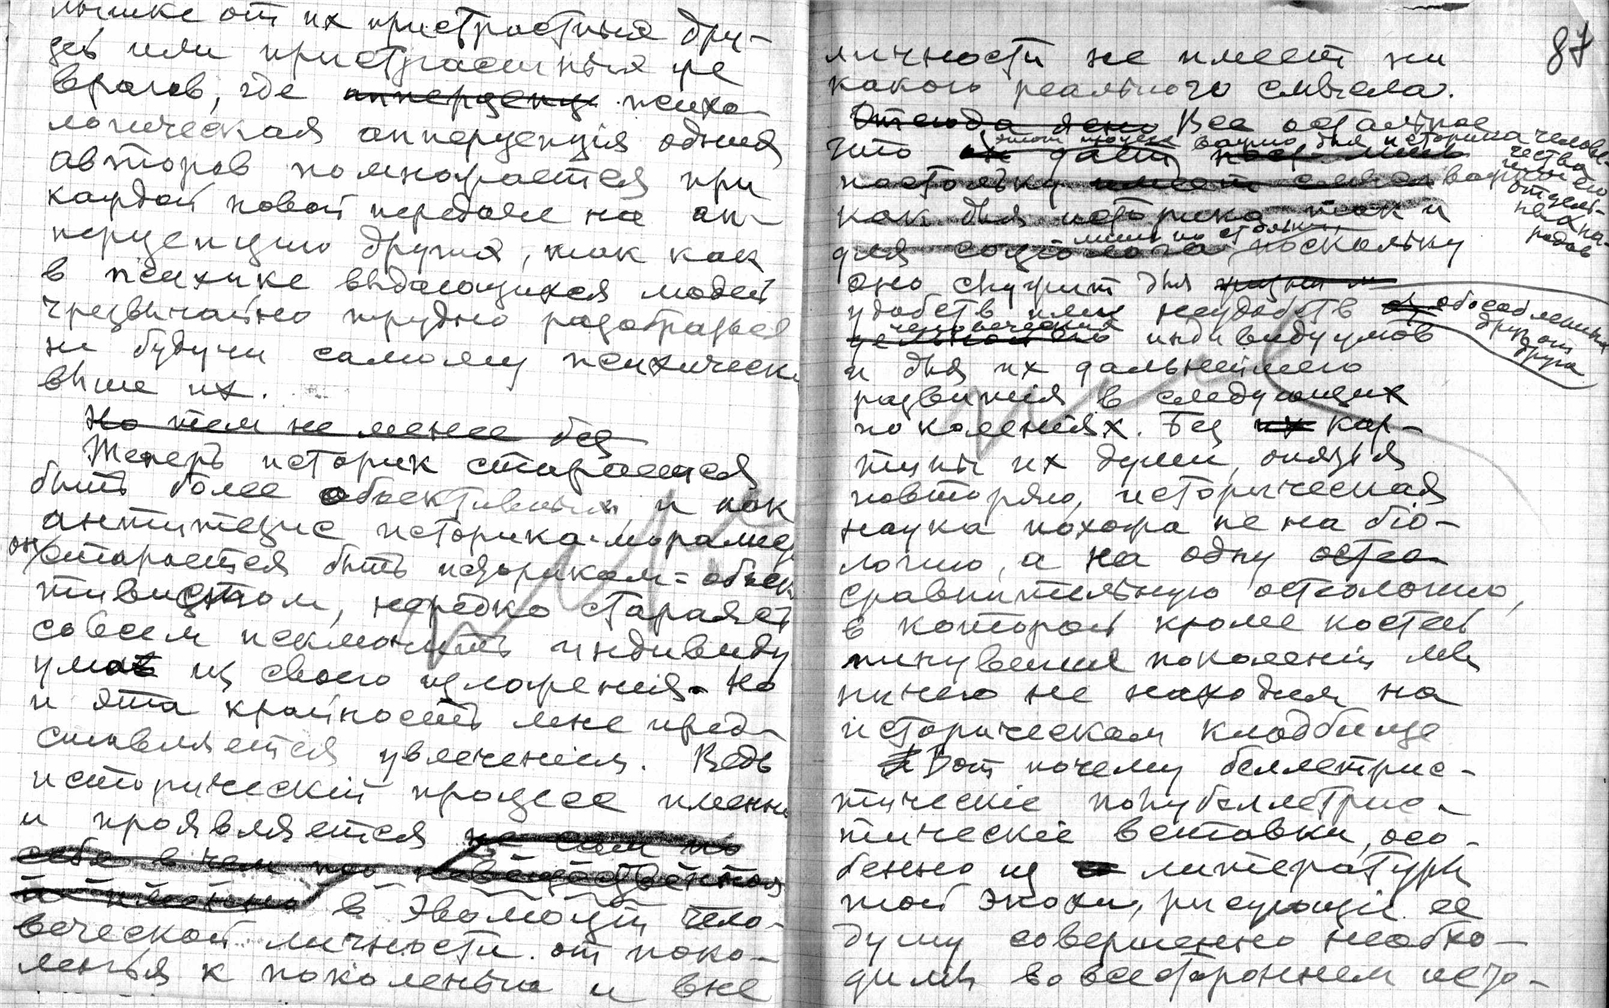 от их пристрастных дру-
зей или пристрастных же
врагов, где апперцепц психо-
логическая апперцепція одних
авторов помножается при
каждой новой передаче на ап-
перцепцию других, так как
в психике выдающихся людей
чрезвычайно трудно разобраться
не будучи самому психически
выше их.
Но тем не менее без
Теперь историк старается
быть более объективным и как
антитезис историка-моралиста
он старается быть историком=объек
тивистом, нередко стараясь
совсем исключить индивиду
ума из своего изложения. Но
и эта крайность мне пред-
ставляется увлечением. Ведь
исторический процесс именно
и проявляется
в эволюции чело-
веческой личности от поко-
ленья к поколенью и вне
87
личности не имеет ни
какого реального смысла.
Отсюда ясно Все остальное
что дает важно для историка человечества и его отдельных народов
настолько
как для историка так и
для социолога лишь по стольку, поскольку
оно служит для жизни
удобств или неудобств обособленных друг от друга
человеческих индивидуумов
и для их дальнейшего
развития в следующих
поколеніях. Без их кар-
тины их души, опять я
повторяю, историческая
наука похожа не на біо-
логию, а на одну остео
сравнительную остеологию,
в которой кроме костей
минувших поколений мы
ничего не находим на
историческом кладбище
Вот почему беллетрис-
тическіе полубеллетрис-
тическіе вставки, осо-
бенно из литературы
той эпохи, рисующіе ее
душу совершенно необхо-
димы во всестороннем исто-